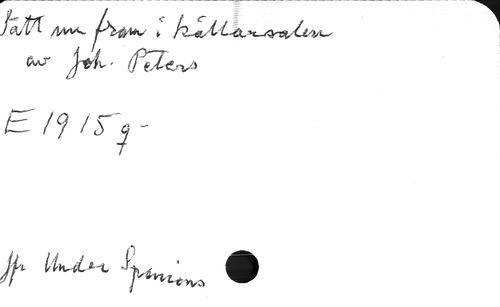 Tätt nu fram i källarsalen
av Joh. Peters
E 1915 g-
Jfr Under Spaniens